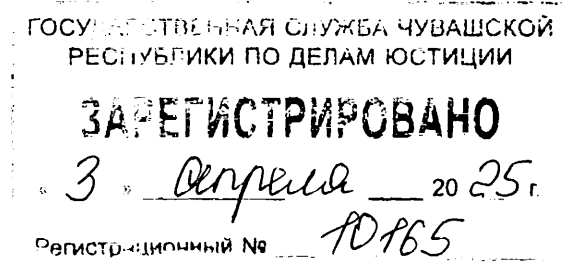 ГОСУДАРСТВЕННАЯ СЛУЖБА ЧУВАШСКОЙ
РЕСПУБЛИКИ ПО ДЕЛАМ ЮСТИЦИИ
ЗАРЕГИСТРИРОВАНО
« 3 » апреля 2025 г.
Регистрационный № 10165